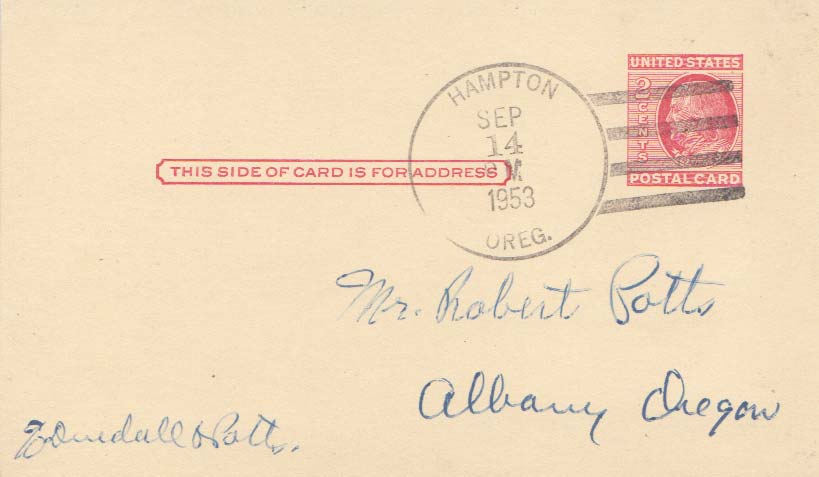 UNITED STATES
2 CENTS
POSTAL CARD
HAMPTON
SEP
14
M
1953
OREG.
THIS SIDE OF CARD IS FOR ADDRESS
Mr. Robert Potts
Albany Oregon
Potts.